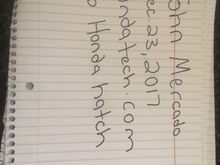 John Mercado
ec.23,2017
ndatech.com
o Honda hatch